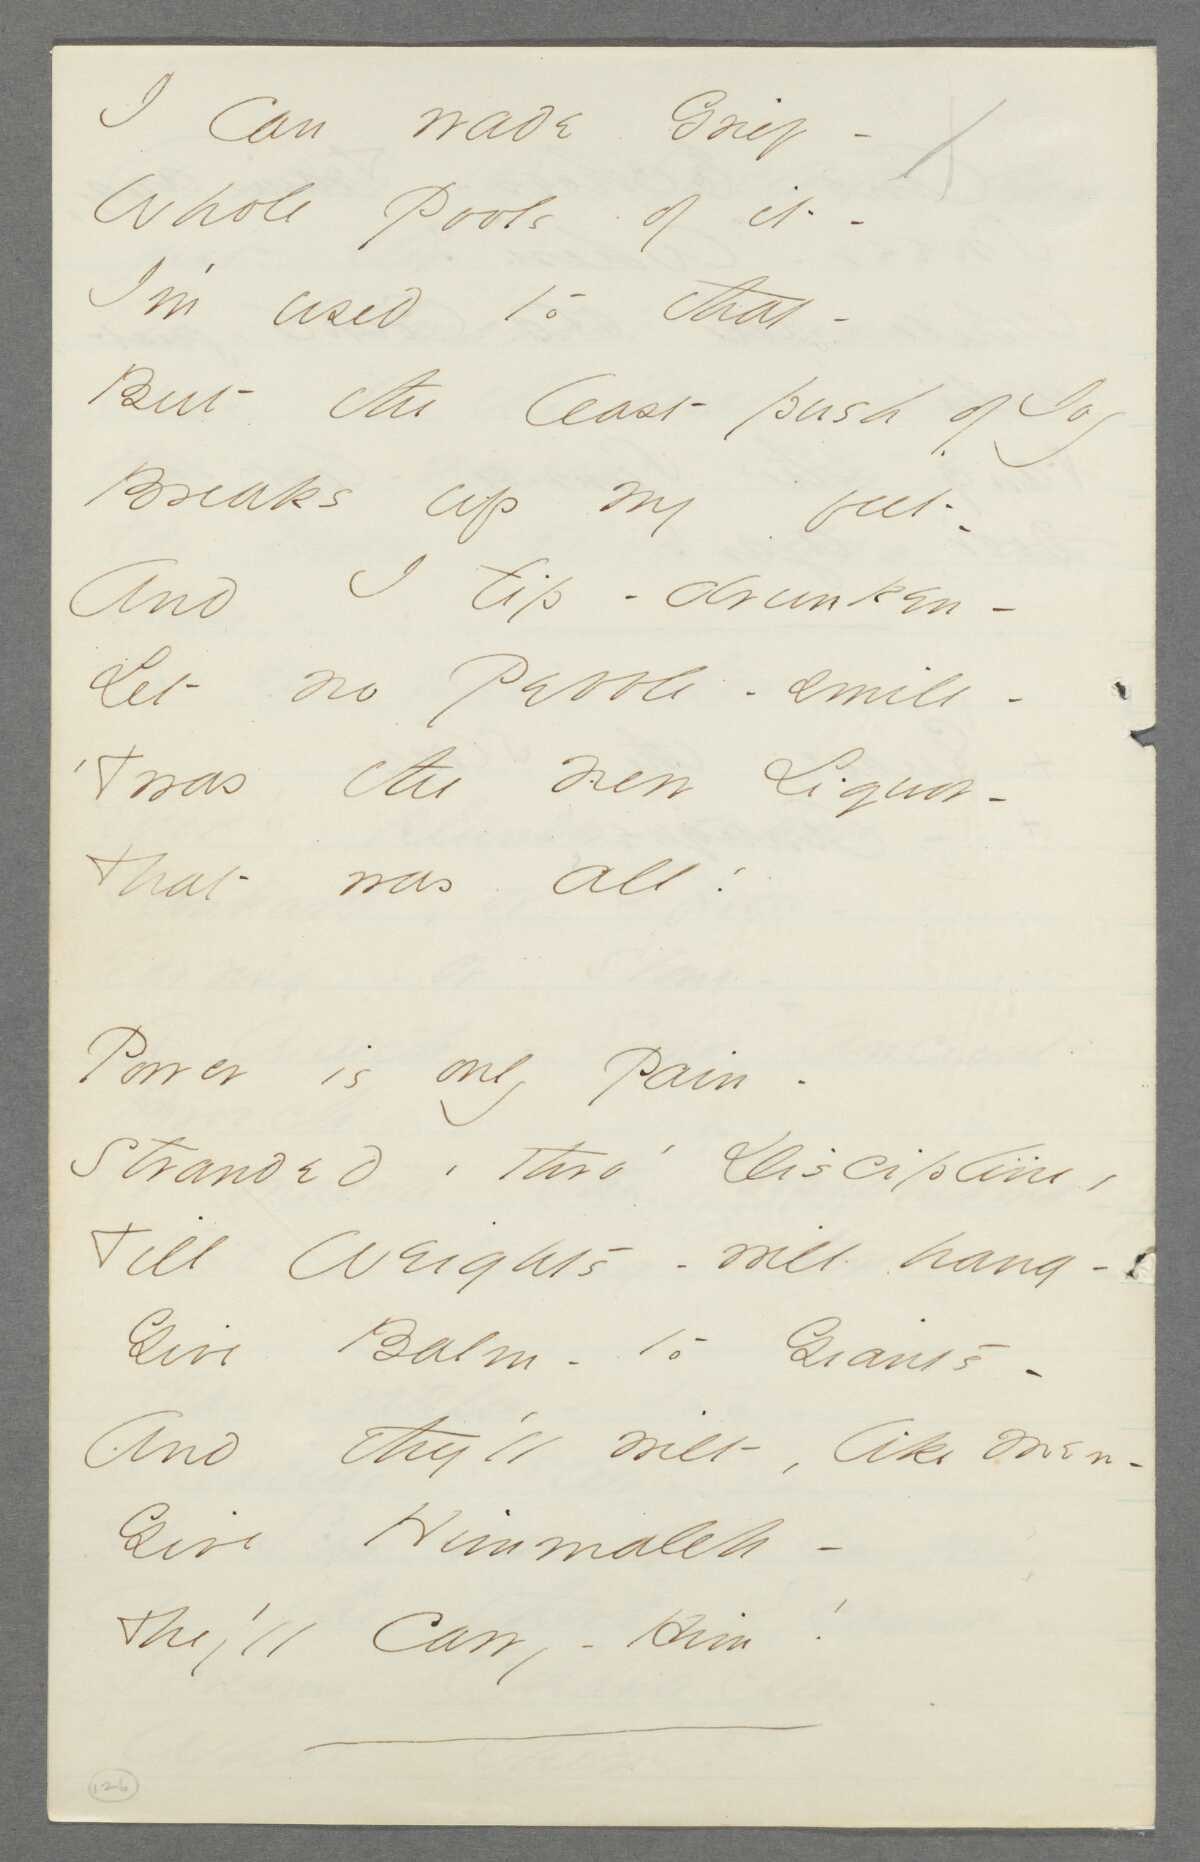 I Can wade Grief -
Whole Pools of it -
I'm used to that -
But the least push of Joy
Breaks up my feet -
And I tip - drunken -
Let no Pebble - smile -
'Twas the new Liquor -
That was all!
Power is only Pain -
Stranded, thro' Discipline,
Till Weights - will hang -
Give Balm - to Giants -
And they'll wilt, like men -
Give Himmaleh -
They'll Carry - Him!
126